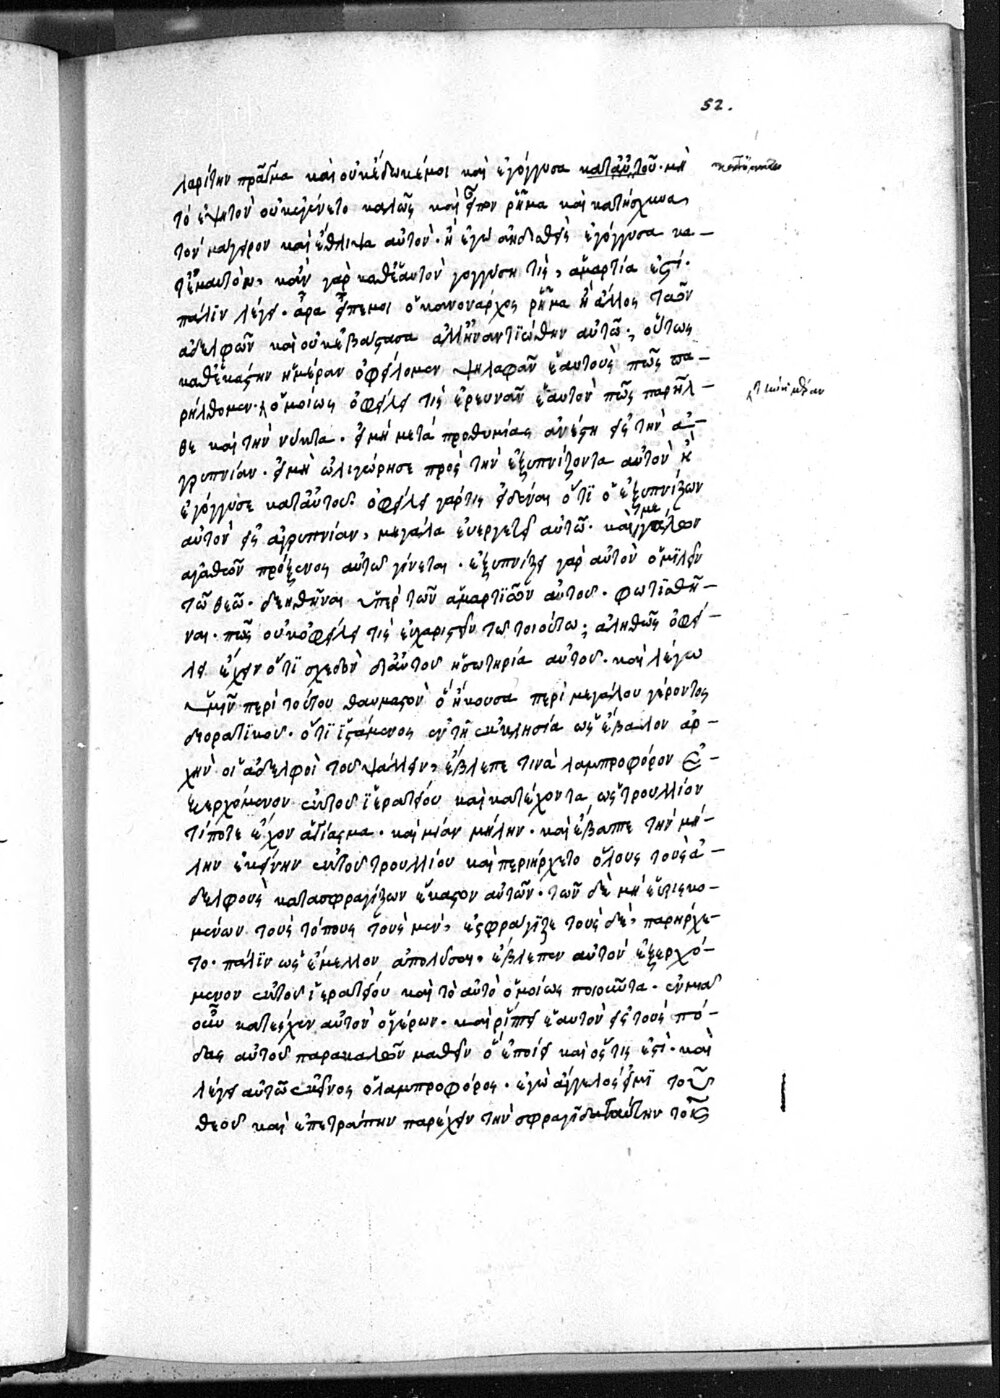 52.
λαρίτην πρᾶγμα καὶ οὐκ ἔδωκέ μοι καὶ ἐγόγγυσα κατ αὐτοῦ· μὴ
τὸ ἑψητὸν οὐκ ἐγένετο καλῶς καὶ εἶπον ῥῆμα καὶ κατήσχυνα
τὸν μάγειρον καὶ ἔθλιψα αὐτόν· ἢ ἐγὼ ἀηδισθεὶς ἐγόγγυσα κα–
τ ἐμαυτόν, κἂν γὰρ καθ ἑαυτὸν γογγύσῃ τις, ἁμαρτία ἐστί·
πάλιν λέγει· ἆρα εἶπέ μοι ὁ κανονάρχος ῥῆμα ἢ ἄλλος τῶν
ἀδελφῶν καὶ οὐκ ἐβάστασα ἀλλ ἠναντιώθην αὐτῷ; οὕτως
καθ ἑκάστην ἡμέραν ὀφείλομεν ψηλαφᾶν ἑαυτοὺς πῶς πα–
ρήλθομεν· ὁμοίως ὀφείλει τις ἐρευνᾶν ἑαυτὸν πῶς παρῆλ–
θε καὶ τὴν νύκτα· εἰ μὴ μετὰ προθυμίας ἀνέστη εἰς τὴν ἀ–
γρυπνίαν· εἰ μὴ ὠλιγώρησε πρὸς τὴν ἐξυπνίζοντα αὐτὸν ἢ
ἐγόγγυσε κατ αὐτοῦ· ὀφείλει γάρ τις εἰδέναι ὅτι ὁ ἐξυπνίζων
αὐτὸν εἰς ἀγρυπνίαν, μεγάλα εὐεργετεῖ αὐτῷ· καὶ μεγάλων
ἀγαθῶν πρόξενος αὐτῷ γίνεται· ἐξυπνίζει γὰρ αὐτὸν ὁμιλεῖν
τῷ θεῷ· δεηθῆναι ὑπὲρ τῶν ἁμαρτιῶν αὐτοῦ· φωτισθῆ–
ναι· πῶς οὐκ ὀφείλει τις εὐχαριστεῖν τῷ τοιούτῳ; ἀληθῶς ὀφεί–
λει ἔχειν ὅτι σχεδὸν δι αὐτοῦ ἡ σωτηρία αὐτοῦ· καὶ λέγω
ὑμῖν περὶ τούτου θαυμαστὸν ὃ ἤκουσα περὶ μεγάλου γέροντος
διορατικοῦ· ὅτι ἱστάμενος ἐν τῇ ἐκκλησίᾳ ὡς ἔβαλον ἀρ–
χὴν οἱ ἀδελφοὶ τοῦ ψάλλειν, ἔβλεπέ τινα λαμπροφόρον ἐ–
ξερχόμενον ἐκ τοῦ ἱερατείου καὶ κατέχοντα ὡς τρουλλίον
τί ποτε ἔχον ἁγίασμα· καὶ μίαν μήλην· καὶ ἔβαπτε τὴν μή–
λην ἐκείνην ἐκ τοῦ τρουλλίου καὶ περιήρχετο ὅλους τοὺς ἀ–
δελφοὺς κατασφραγίζων ἕκαστον αὐτῶν· τῶν δὲ μὴ εὑρισκο–
μένων τοὺς τόπους τοὺς μὲν, ἐσφράγιζε τοὺς δὲ, παρήρχε–
το· πάλιν ὡς ἔμελλον ἀπολύσαι, ἔβλεπεν αὐτὸν ἐξερχό–
μενον ἐκ τοῦ ἱερατείου καὶ τὸ αὐτὸ ὁμοίως ποιοῦντα· ἐν μιᾷ
οὖν κατέσχεν αὐτὸν ὁ γέρων· καὶ ῥίπτει ἑαυτὸν εἰς τοὺς πό–
δας αὐτοῦ παρακαλῶν μαθεῖν ὃ ἐποίει καὶ ὅστις ἐστί· καὶ
λέγει αὐτῷ ἐκεῖνος ὁ λαμπροφόρος· ἐγὼ ἄγγελός εἰμι τοῦ
θεοῦ καὶ ἐπετράπην παρέχειν τὴν σφραγῖδα ταύτην τοῖς